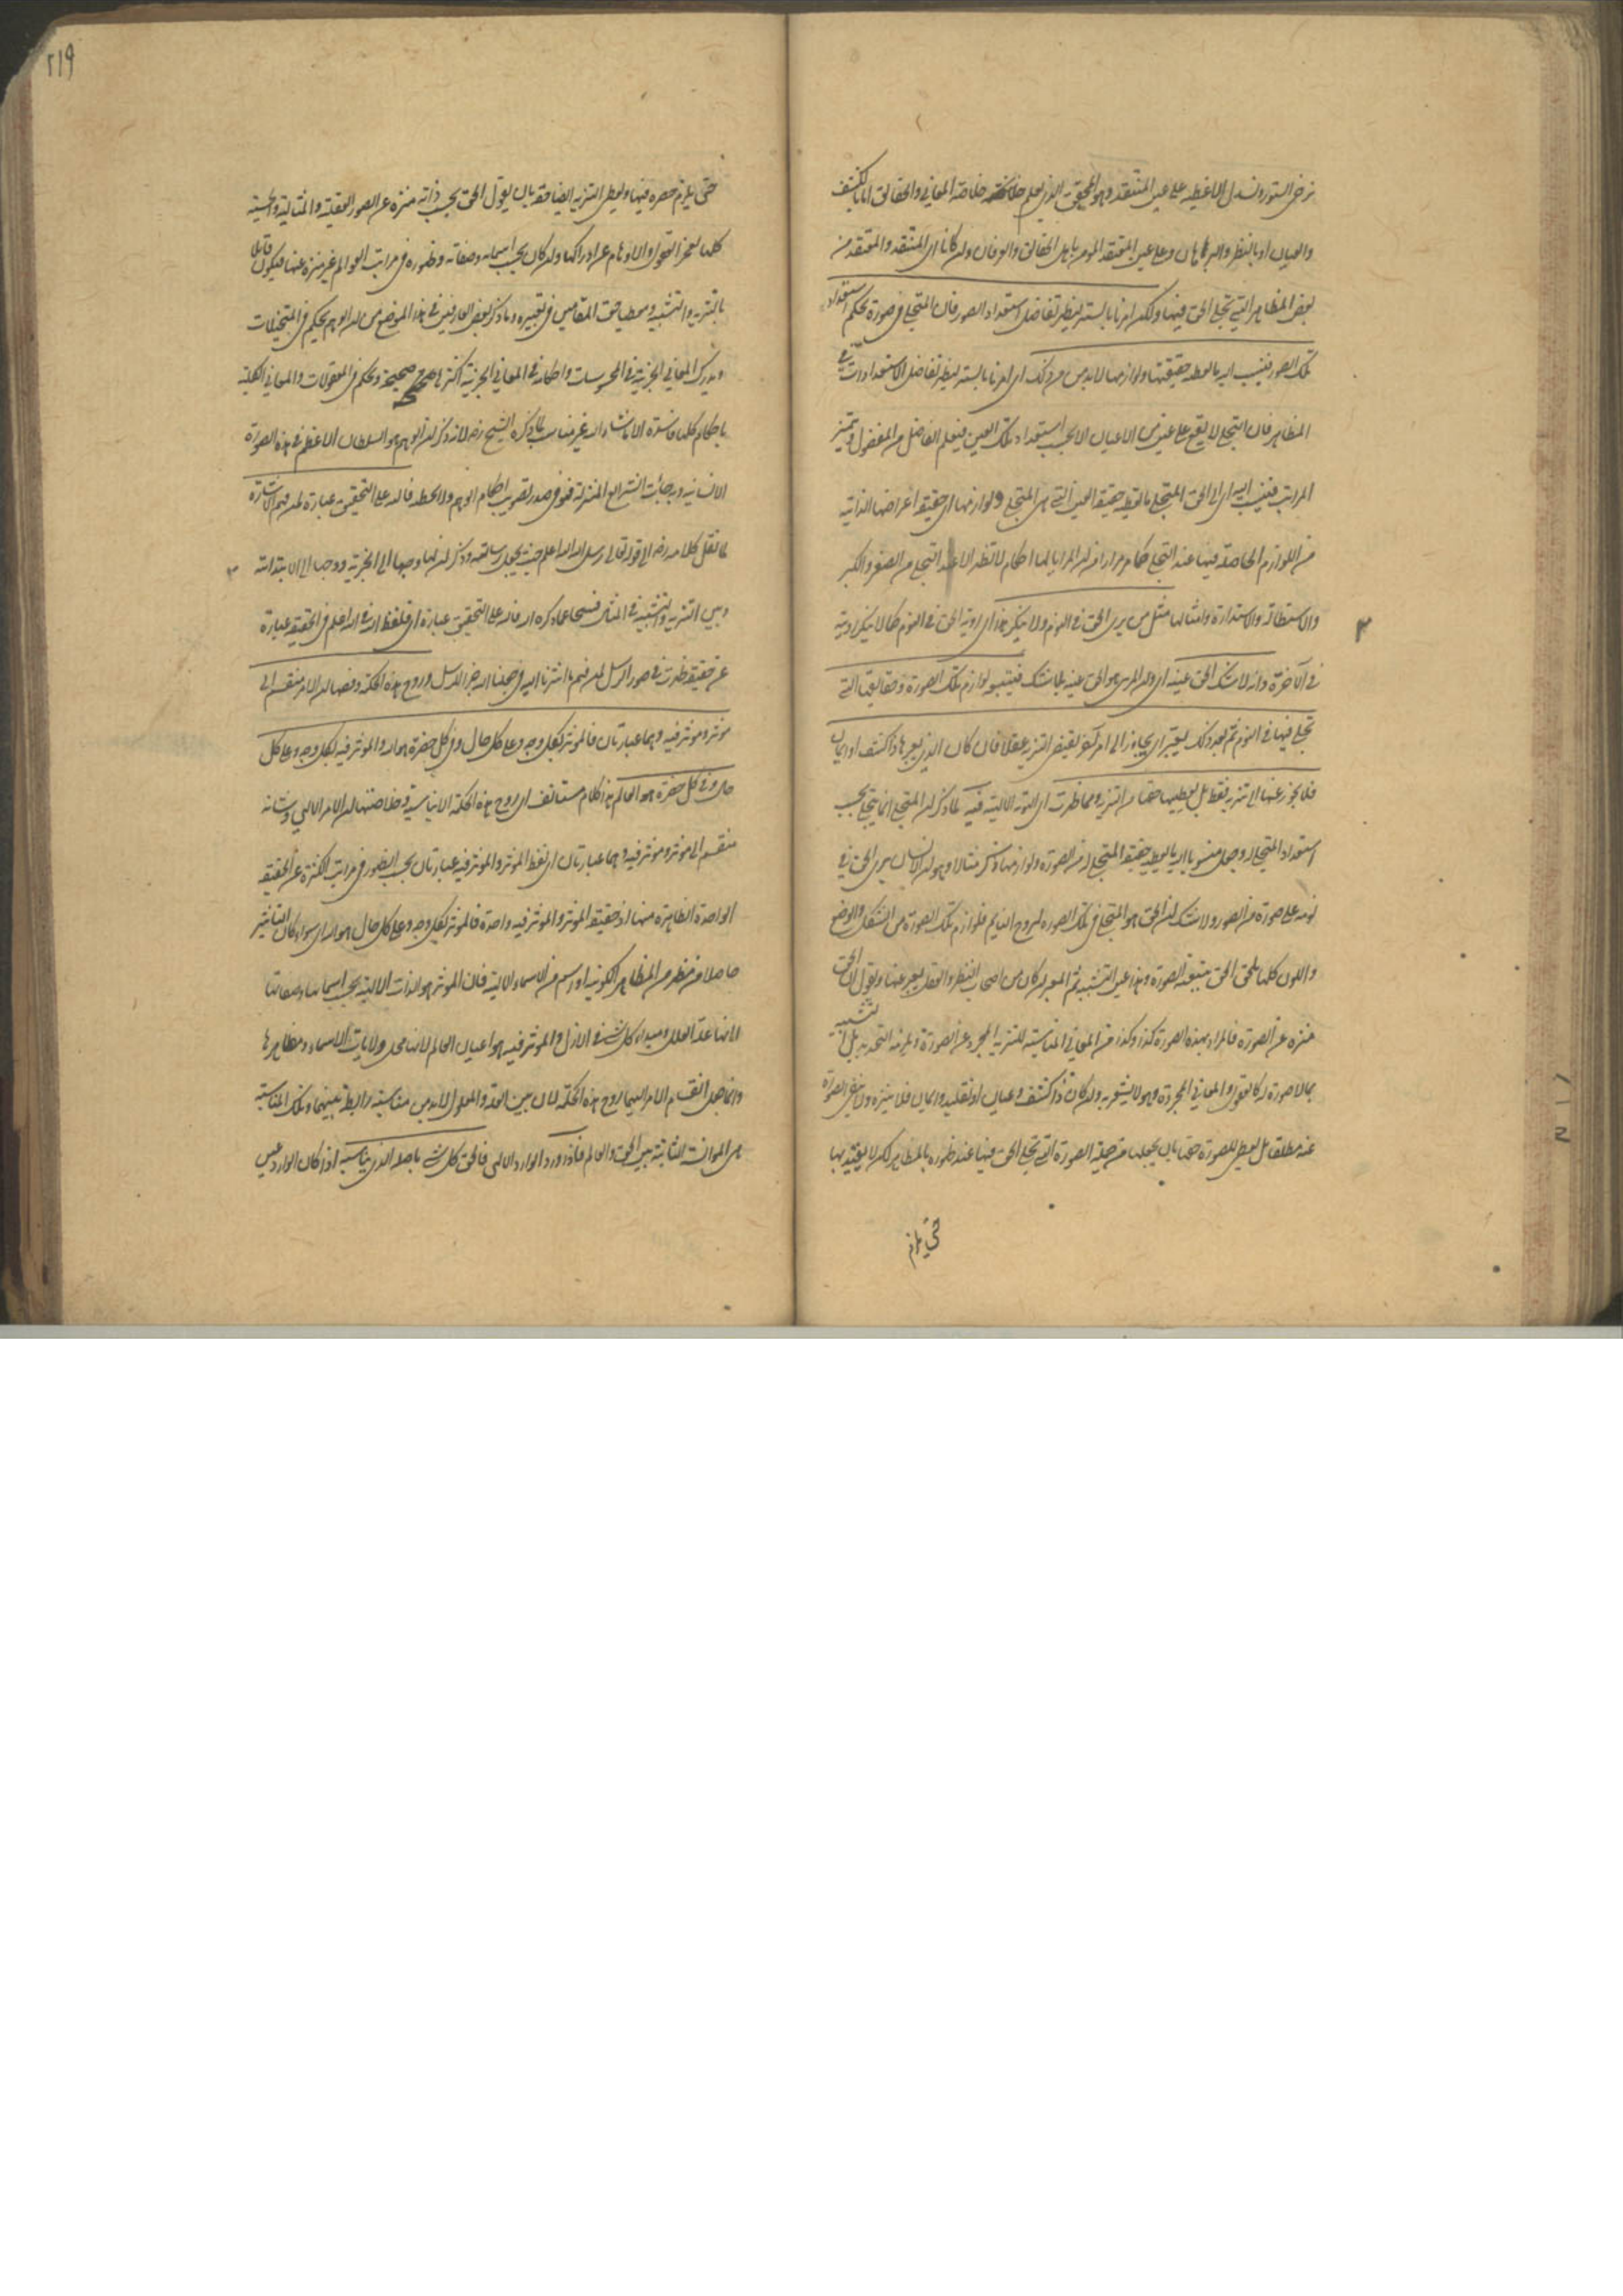 نرخي الستور ونسدل الاغطية على عين المنتقد وهو المحقق الذي يعلم خلاصة المعاني والحقائق اما بالكشف
والعيان او بالنظر والبرهان وعلى عين المعتقد المؤمن باهل الحقائق والعرفان وان كانا اي المنتقد والمعتقد من
بعض المظاهر التي تجلى الحق فيها ولكن امرنا بالستر ليظهر تفاضل استعداد الصور فان المتجلي في صورة بحكم استعداد
تلك الصور فينسب اليه ما تعطيه حقيقتها ولوازمها لابد من ذلك اي امرنا بالستر ليظهر تفاضل الاستعدادات في
المظاهر فان التجلي لا يقع على عين من الاعيان الا بحسب استعداد تلك العين فيعلم الفاضل من المفضول ويتميز
المراتب فينسب اليه اي الى الحق المتجلي ما تعطيه حقيقة العين التي هي المتجلى ولوازمها اي حقيقة اعراضها الذاتية
من اللوازم الحاصلة فيها عند التجلي كما مر مرارا من ان المرايا لها احكام لا تظهر الا عند التجلي من الصغر والكبر
والاستطالة والاستدارة وامثالها مثل من يرى الحق في النوم ولا ينكر هذا اي رؤية الحق في النوم كما لا ينكر رؤيته
في الآخرة وانه لا شك الحق عينه اي وان المرئي هو الحق عينه بلا شك فيتبعه لوازم تلك الصورة وحقائقها التي
تجلى فيها في النوم ثم بعد ذلك يعبر اي يجاوز الى امر آخر يقتضي التنزيه عقلا فان كان الذي يعبرها ذا كشف او ايمان
فلا يجوز عنها الى تنزيه فقط بل يعطيها حقها من التنزيه ومما ظهرت اي الهوية الالهية فيه لما ذكر ان المتجلي انما يتجلى بحسب
استعداد المتجلى له وجعل منسوبا اليه ما يعطيه حقيقة المتجلى له من الصورة ولوازمها ذكر مثالا وهو ان الانسان يرى الحق في
نومه على صورة من الصور ولا شك ان الحق هو المتجلي في تلك الصورة لروح النائم فلوازم تلك الصورة من الشكل والوضع
واللون كلها يلحق الحق بتبعية الصورة وهذا عين التشبيه ثم المعبر ان كان من اصحاب النظر والعقل يعبر عنها ويقول ان الحق
منزه عن الصورة فالمراد بهذه الصورة كذا وكذا من المعاني المناسبة للتنزيه المجرد عن الصورة ويلزمه التحديد بل التشبيه
بما لا صورة له كالعقول والمعاني المجردة وهو لا يشعر به وان كان ذا كشف وعيان او تقليد وايمان فلا ينزه ولا ينفي الصورة
عنه مطلقا بل يعطي للصورة حقها بان يجعلها من جملة الصور التي تجلى الحق فيها عند ظهوره بالمظاهر لكن لا يقيده بها
حتى يلزم
٢١٩
حتى يلزم حصره فيها ويعطي التنزيه ايضا حقه بان يقول الحق بحسب ذاته منزه عن الصور العقلية والمثالية والحسية
كلها لعجز العقول والاوهام عن ادراكها وان كان بحسب اسمائه وصفاته وظهوره في مراتب العوالم غير منزه عنها فيكون قائلا
بالتنزيه والتشبيه ومعطيا حق المقامين في تعبيره وما ذكر بعض العارفين في هذا الموضع من ان الوهم يحكم في المتخيلات
ويدرك المعاني الجزئية في المحسوسات واحكامه في المعاني الجزئية اكثرها صحيحة ويحكم في المعقولات والمعاني الكلية
باحكام كلها فاسدة الا ما شاء الله غير مناسب لما ذكره الشيخ رض لانه ذكر ان الوهم هو السلطان الاعظم في هذه الصورة
الانسانية وبه جاءت الشرائع المنزلة فهو في صدد تصويب احكام الوهم ولا يخطئه فالله على التحقيق عبارة لمن فهم الاشارة
لما نقل كلامه رض الى قوله تعالى رسل الله الله اعلم حيث يجعل رسالته وذكر ان لها وجها الى الخبرية ووجها الى الابتدائية
وبين التنزيه والتشبيه في المنام رجع الى ما ذكره اي فالله على التحقيق عبارة اي فلفظ الله في الله اعلم في الحقيقة عبارة
عن حقيقة ظهرت في صور الرسل لمن فهم ما اشرنا اليه في جعلنا الله خبر الرسل وروح هذه الحكمة وفصها ان الامر منقسم الى
مؤثر ومؤثر فيه وهما عبارتان فالمؤثر بكل وجه وعلى كل حال وفي كل حضرة هو الله والمؤثر فيه بكل وجه وعلى كل
حال وفي كل حضرة هو العالم هذا كلام مستأنف اي روح هذه الحكمة الايناسية وخلاصتها ان الامر الالهي وشأنه
منقسم الى مؤثر ومؤثر فيه وهما عبارتان اي لفظ المؤثر والمؤثر فيه عبارتان بحسب الظهور في مراتب الكثرة عن الحقيقة
الواحدة الظاهرة فيها اذ حقيقة المؤثر والمؤثر فيه واحدة فالمؤثر بكل وجه وعلى كل حال هو الله اي سواء كان التأثير
حاصلا من مظهر من المظاهر الكونية او اسم من الاسماء الالهية فان المؤثر هو الذات الالهية بحسب اسمائها وصفاتها
لانها علة العلل ومبدأ كل شيء في الازل والمؤثر فيه هو اعيان العالم لانها محل ولايات الاسماء ومظاهرها
وانما جعل انقسام الامر اليهما روح هذه الحكمة لان بين العلة والمعلول لابد من مناسبة رابطة بينهما وتلك المناسبة
هي المؤانسة الثابتة بين الحق والعالم فاذا ورد الوارد الالهي فالحق كل شيء باصله الذي يناسبه اذا كان الوارد عين